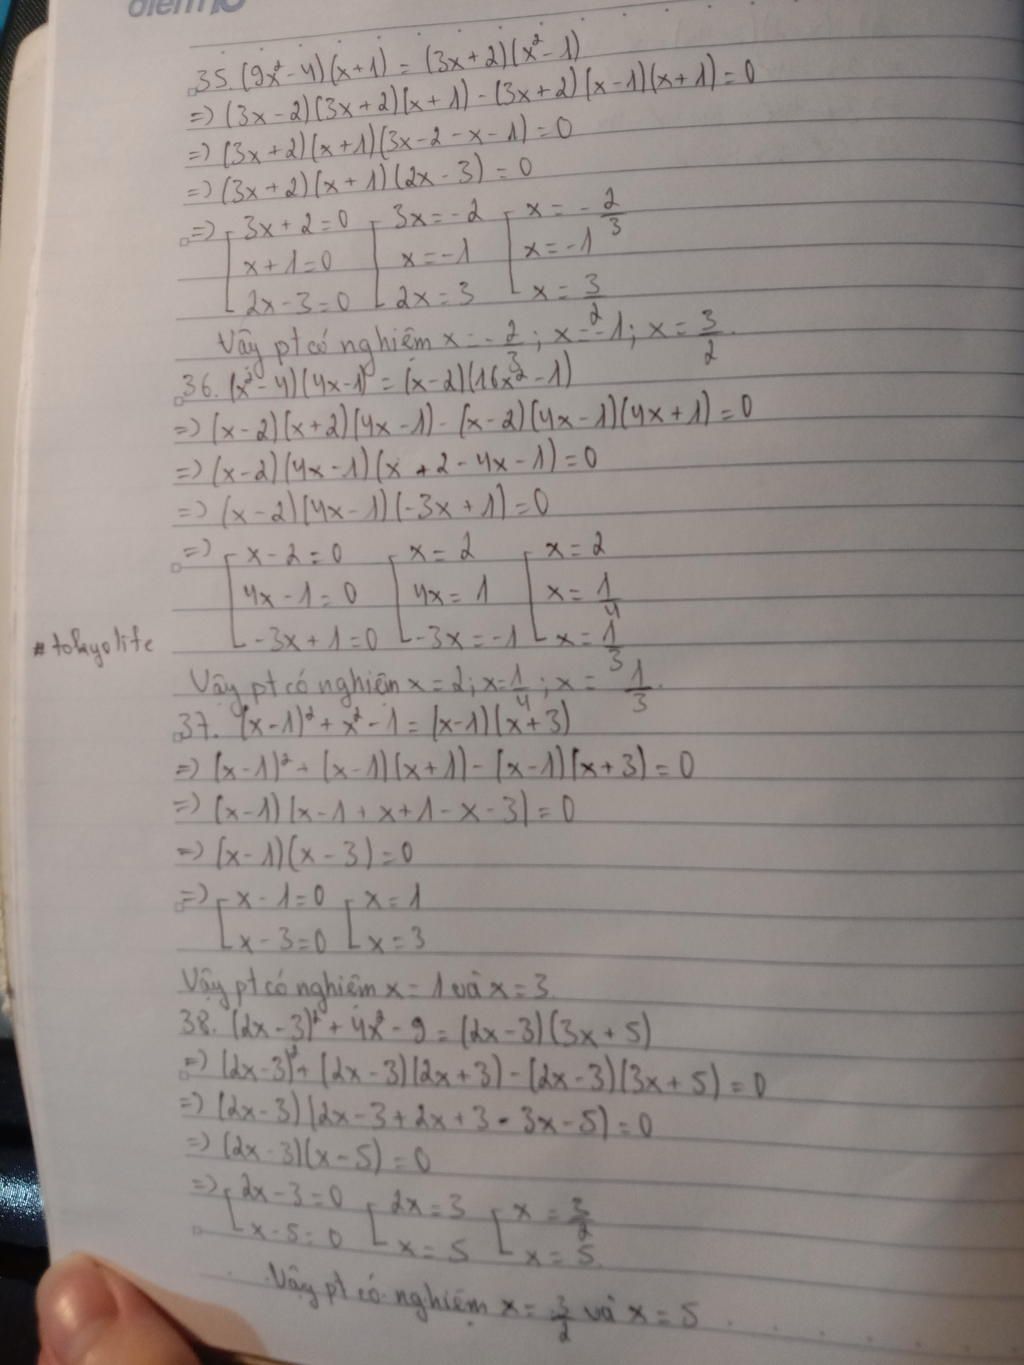 điểm 10
35. (9x² - 4)(x + 1) = (3x + 2)(x² - 1)
=> (3x - 2)(3x + 2)(x + 1) - (3x + 2)(x - 1)(x + 1) = 0
=> (3x + 2)(x + 1)(3x - 2 - x - 1) = 0
=> (3x + 2)(x + 1)(2x - 3) = 0
=> [ 3x + 2 = 0 [ 3x = -2 [ x = -2/3
x + 1 = 0 x = -1 x = -1
2x - 3 = 0 2x = 3 x = 3/2
Vậy pt có nghiệm x = -2/3 ; x = -1 ; x = 3/2.
36. (x² - 4)(4x - 1) = (x - 2)(16x² - 1)
=> (x - 2)(x + 2)(4x - 1) - (x - 2)(4x - 1)(4x + 1) = 0
=> (x - 2)(4x - 1)(x + 2 - 4x - 1) = 0
=> (x - 2)(4x - 1)(-3x + 1) = 0
=> [ x - 2 = 0 [ x = 2 [ x = 2
4x - 1 = 0 4x = 1 x = 1/4
#tokyolife -3x + 1 = 0 -3x = -1 x = 1/3
Vậy pt có nghiệm x = 2 ; x = 1/4 ; x = 1/3.
37. (x - 1)² + x² - 1 = (x - 1)(x + 3)
=> (x - 1)² + (x - 1)(x + 1) - (x - 1)(x + 3) = 0
=> (x - 1)(x - 1 + x + 1 - x - 3) = 0
=> (x - 1)(x - 3) = 0
=> [ x - 1 = 0 [ x = 1
x - 3 = 0 x = 3
Vậy pt có nghiệm x = 1 và x = 3.
38. (2x - 3)² + 4x² - 9 = (2x - 3)(3x + 5)
=> (2x - 3)² + (2x - 3)(2x + 3) - (2x - 3)(3x + 5) = 0
=> (2x - 3)(2x - 3 + 2x + 3 - 3x - 5) = 0
=> (2x - 3)(x - 5) = 0
=> [ 2x - 3 = 0 [ 2x = 3 [ x = 3/2
x - 5 = 0 x = 5 x = 5.
Vậy pt có nghiệm x = 3/2 và x = 5